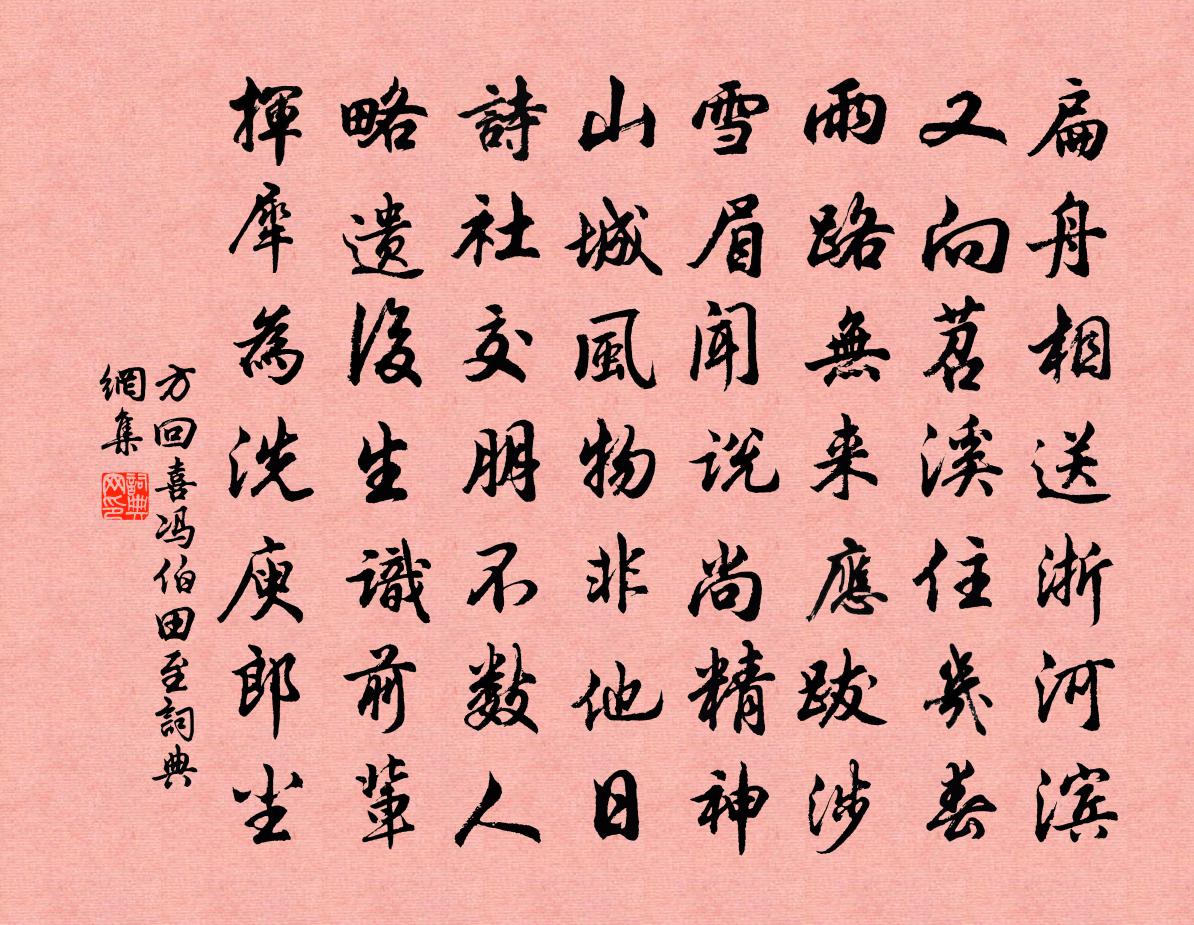 扁舟相送浙河滨
又向苕溪住幾春
雨路無来應跋涉
雪眉闻说尚精神
山城風物非他日
詩社交朋不数人
略遗後生識前輩
揮犀為洗庾郎尘
方回喜冯伯田至詞典
網集
詞典网印